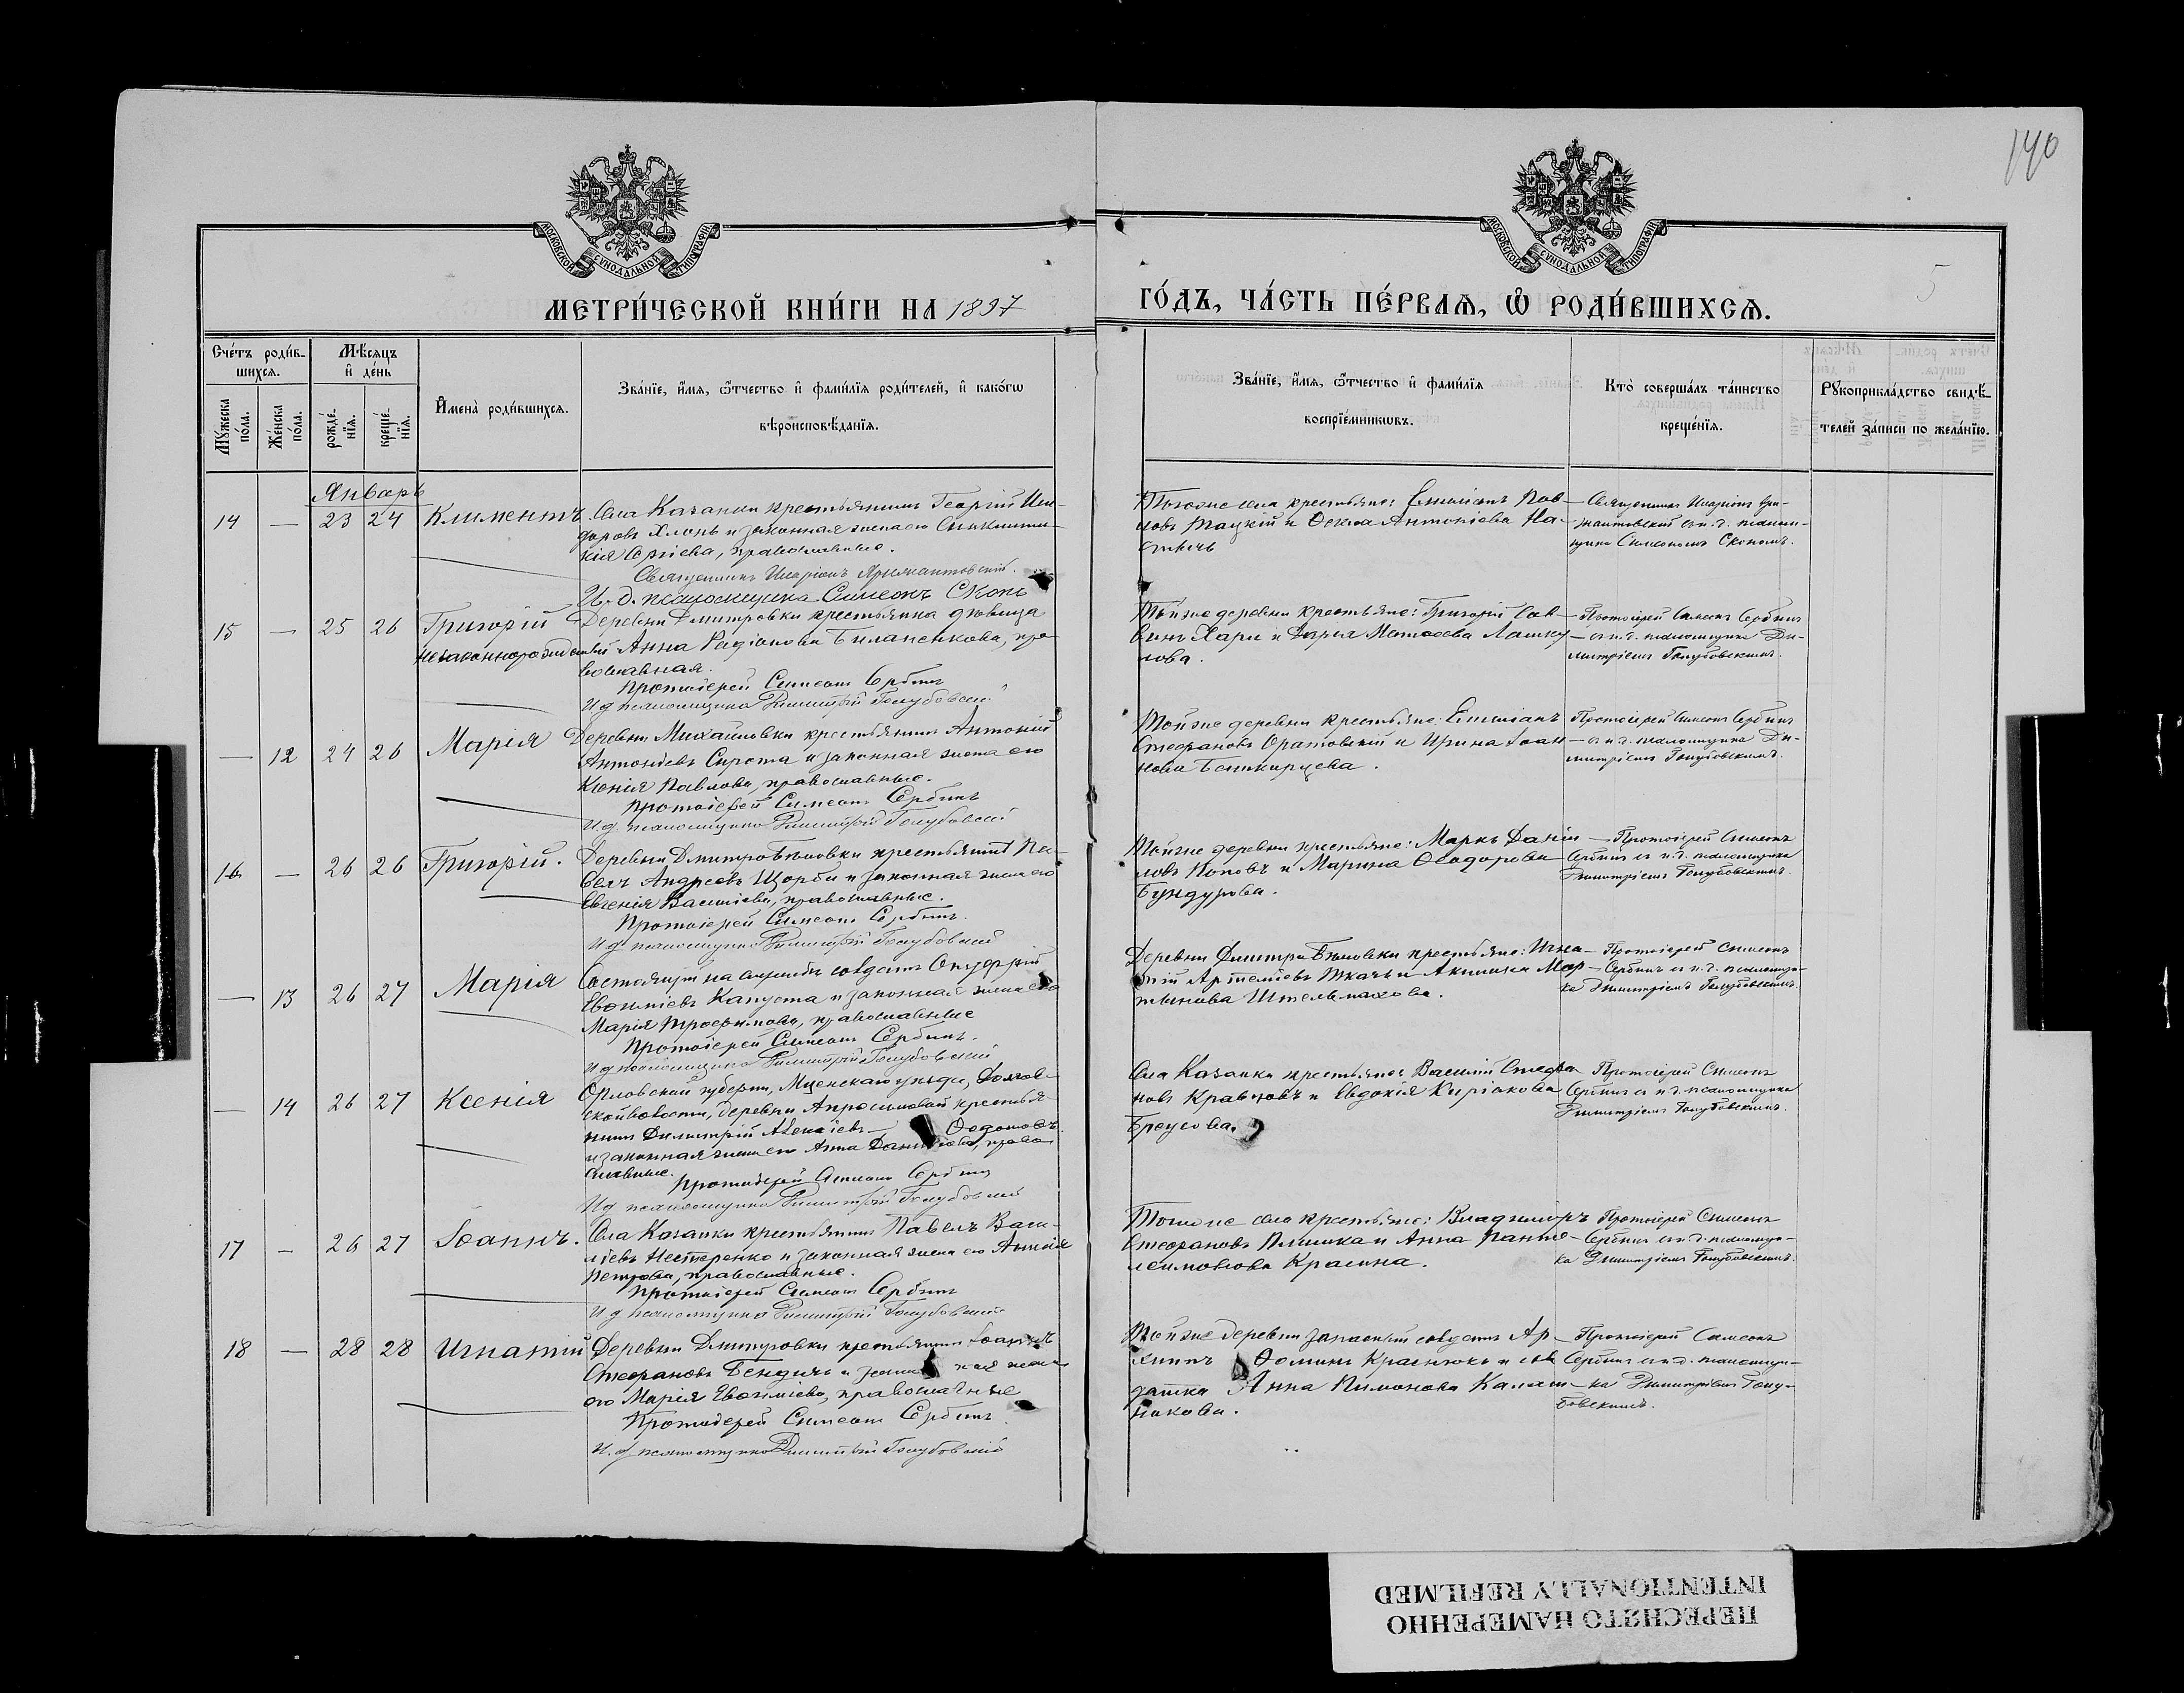 140
5
МОСКОВСКОЙ СУНОДАЛЬНОЙ ТИПОГРАФІИ
МОСКОВСКОЙ СУНОДАЛЬНОЙ ТИПОГРАФІИ
МЕТРИ́ЧЕСКОЙ КНИ́ГИ НА 1897
ГО́ДЪ, ЧА́СТЬ ПЕ́РВАѦ, Ѡ҆ РОДИ́ВШИХСѦ.
Сче́тъ роди́в-
шихсѧ.
Мѣ́сѧцъ
и҆ де́нь
Мꙋ́жеска по́ла.
Же́нска по́ла.
рожде́-нїѧ.
креще́-нїѧ.
И҆мена̀ роди́вшихсѧ.
Зва́нїе, и҆́мѧ, ѻ҆́тчество и҆ фами́лїѧ роди́телей, и҆ како́гѡ
вѣроисповѣ́данїѧ.
Зва́нїе, и҆́мѧ, ѻ҆́тчество и҆ фами́лїѧ
воспрїе́мникѡвъ.
Кто̀ соверша́лъ та́инство
креще́нїѧ.
Рꙋкоприкла́дство свидѣ́-
телей за́писи по жела́нїю.
Январь
14 — 23 24 Климентъ
Села Казанки крестьянинъ Георгій
доровъ Хлонь и законная жена его Синклити-
кія Сергіева, православные.
Священникъ Иларіонъ Яржемтовскій.
И. д. псаломщика Симеонъ Скопъ
Тогоже села крестьяне: Емиліанъ Пав-
ловъ и Ѳекла Антоніева
Священникъ Иларіонъ
съ и. д. псалом-
щика Симеономъ Скопомъ.
15 — 25 26 Григорій
незаконнорожденный
Деревни Дмитровки крестьянка дѣвица
Анна Радіонова Биланенкова, пра-
вославная.
Протоіерей Симеонъ Сербинъ
И д псаломщика Димитрій Голубовскій
Тойже деревни крестьяне: Григорій Сав-
винъ Хари и Дарья Матѳеева Лашку-
лова.
Протоіерей Симеонъ Сербинъ
съ и. д. псаломщика Ди-
митріемъ Голубовскимъ.
— 12 24 26 Марія
Деревни Михайловки крестьянинъ Антоній
Антоніевъ Сирота и законная жена его
Ксенія Павлова, православные.
Протоіерей Симеонъ Сербинъ
И. д. псаломщика Димитрій Голубовскій
Тойже деревни крестьяне: Емиліанъ
Стефановъ Оратовскій и Ирина Іоан-
нова Башкирцева.
Протоіерей Симеонъ Сербинъ
съ и. д. псаломщика Ди-
митріемъ Голубовскимъ.
16 — 26 26 Григорій.
Деревни Дмитро-Бѣловки крестьянинъ Па-
велъ Андреевъ Щорба и законная жена его
Евгенія Васильева, православные.
Протоіерей Симеонъ Сербинъ.
И. д. псаломщика Димитрій Голубовскій
Тойже деревни крестьяне: Маркъ Даніи-
ловъ Поповъ и Марина Ѳеодорова
Бундурова.
Протоіерей Симеонъ
Сербинъ съ и. д. псаломщика
Димитріемъ Голубовскимъ.
— 13 26 27 Марія
Состоящій на службѣ солдатъ Онуфрій
Евѳиміевъ Капуста и законная жена его
Марія Трофимова, православные
Протоіерей Симеонъ Сербинъ.
И д псаломщика Димитрій Голубовскій
Деревни Дмитро-Бѣловки крестьяне: Игна-
тій Артеміевъ Ткачъ и Акилина Мар-
тынова Штельмахова.
Протоіерей Симеонъ
Сербинъ съ и. д. псаломщи-
ка Димитріемъ Голубовскимъ.
— 14 26 27 Ксенія
Орловской губерніи, Мценскаго уѣзда,
ской волости, деревни крестья-
нинъ Димитрій Алексіевъ Ѳедотовъ
и законная жена его Анна Даниіловa, право-
славные.
Протоіерей Симеонъ Сербинъ
И д псаломщика Димитрій Голубовскій
Села Казанки крестьяне: Василій Стефа-
новъ Кравцовъ и Евдокія Киріакова
Бреусова.
Протоіерей Симеонъ
Сербинъ съ и. д. псаломщика
Димитріемъ Голубовскимъ.
17 — 26 27 Іоаннъ.
Села Казанки крестьянинъ Павелъ Васи-
ліевъ Нестеренко и законная жена его Анна
Петрова, православные.
Протоіерей Симеонъ Сербинъ
И д псаломщика Димитрій Голубовскій
Тогоже села крестьяне: Владиміръ
Стефановъ и Анна Панте-
леимонова Красина.
Протоіерей Симеонъ
Сербинъ съ и. д. псаломщи-
ка Димитріемъ Голубовскимъ.
18 — 28 28 Игнатій
Деревни Дмитровки крестьянинъ Іоаннъ
Стефановъ Бендичъ и законная жена
его Марія Евѳиміева, православные
Протоіерей Симеонъ Сербинъ.
И. д. псаломщика Димитрій Голубовскій
Тойже деревни запасный солдатъ Ар-
хиппъ Ѳоминъ Краснюкъ и сол-
датка Анна Пимонова Калаш-
никова.
Протоіерей Симеонъ
Сербинъ съ и. д. псаломщи-
ка Димитріемъ Голу-
бовскимъ.
ПЕРЕСНЯТО НАМЕРЕННО
INTENTIONALLY REFILMED